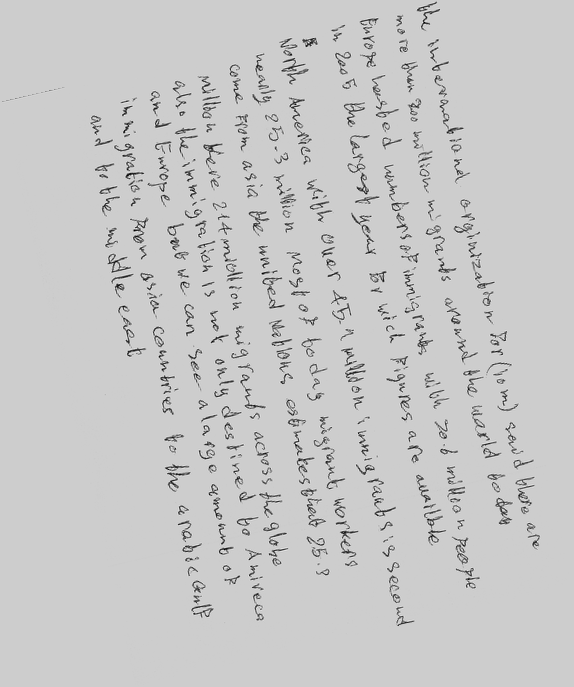 the international orginization for (iom) said there are
more then 200 million migrants around the world today
Europe hosted numbers of immigrants with 70.6 million people
in 2005 the largest year for wich figures are availble
North America with over 45.1 million immigrants is second
nearly 25.3 million most of today migrant workers
come from asia the united Nations estimatesthat 25.3
million there 214 million migrants across the globe
also the immigration is not only destined to Amireca
and Europe but we can see a large amount of
immigration from asia countries to the arabic Gulf
and to the middle east